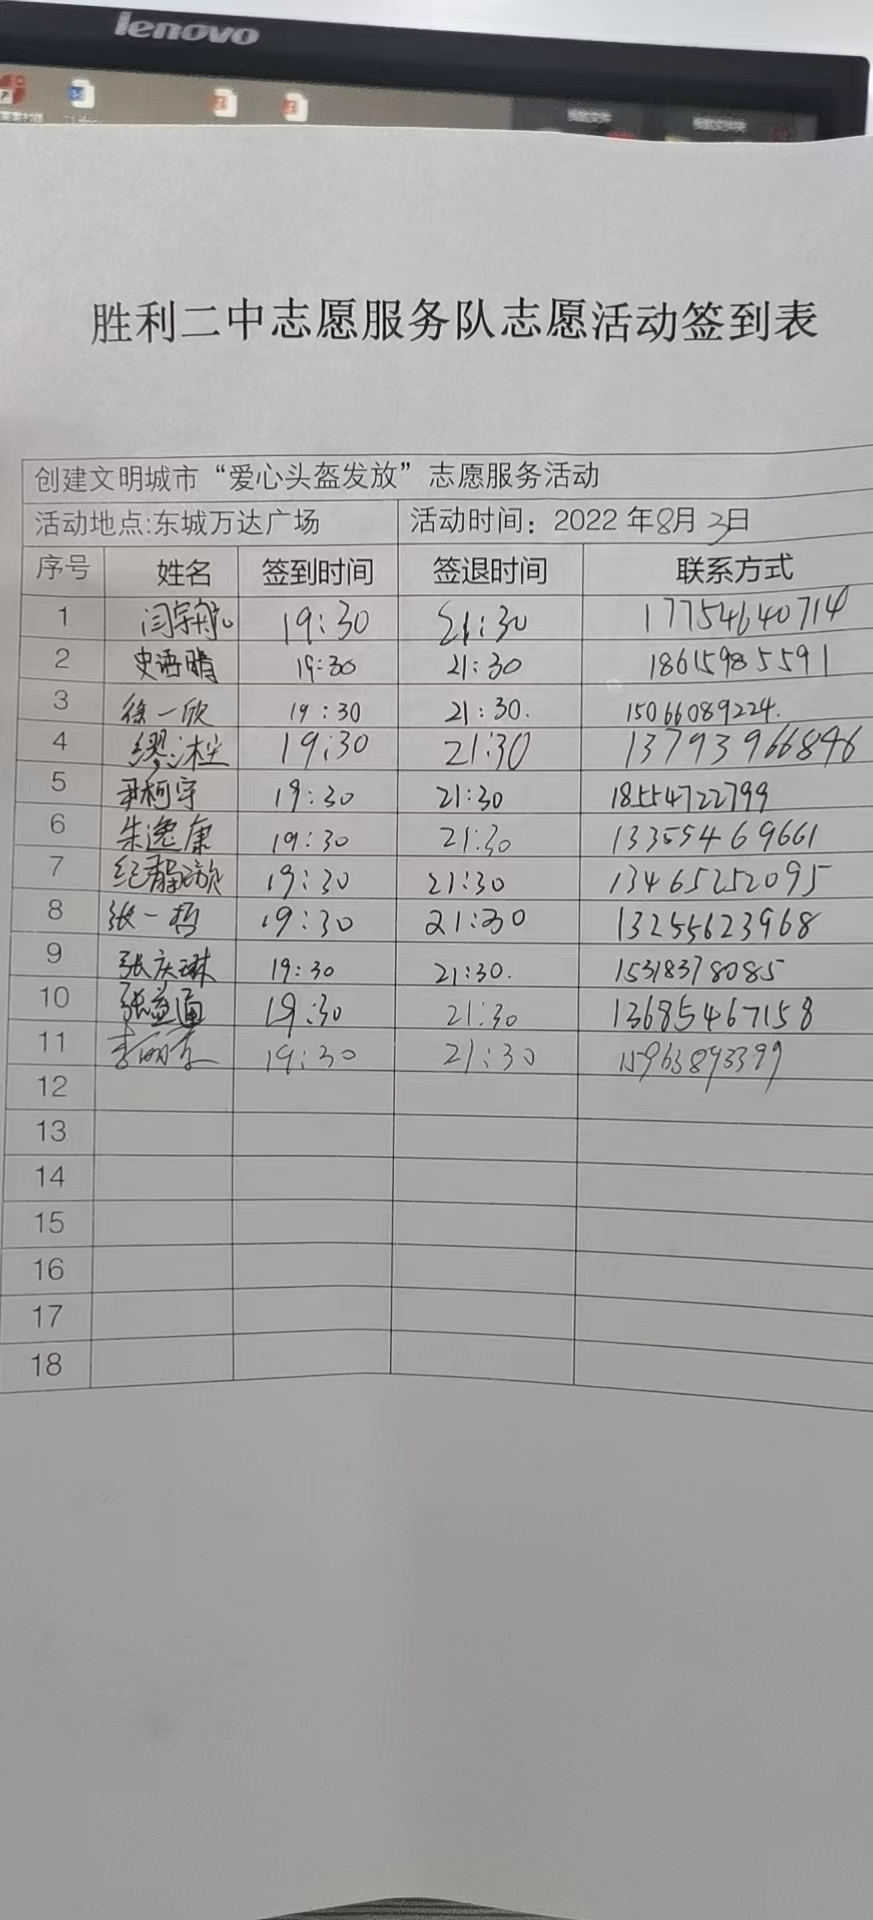 lenovo
胜利二中志愿服务队志愿活动签到表
创建文明城市“爱心头盔发放”志愿服务活动
活动地点:东城万达广场 活动时间：2022年8月3日
序号 姓名 签到时间 签退时间 联系方式
1 闫宇航 19:30 21:30 17754640714
2 史语晴 19:30 21:30 18615985591
3 徐一欣 19:30 21:30. 15066089224.
4 19:30 21:30 13793966846
5 尹柯宇 19:30 21:30 18554722799
6 朱逸康 19:30 21:30 13355469661
7 纪静欣 19:30 21:30 13465252095
8 张一哲 19:30 21:30 13255623968
9 张庆琳 19:30 21:30. 15318378085
10 张益通 19:30 21:30 13685467158
11 19:30 21:30 15963893399
12
13
14
15
16
17
18